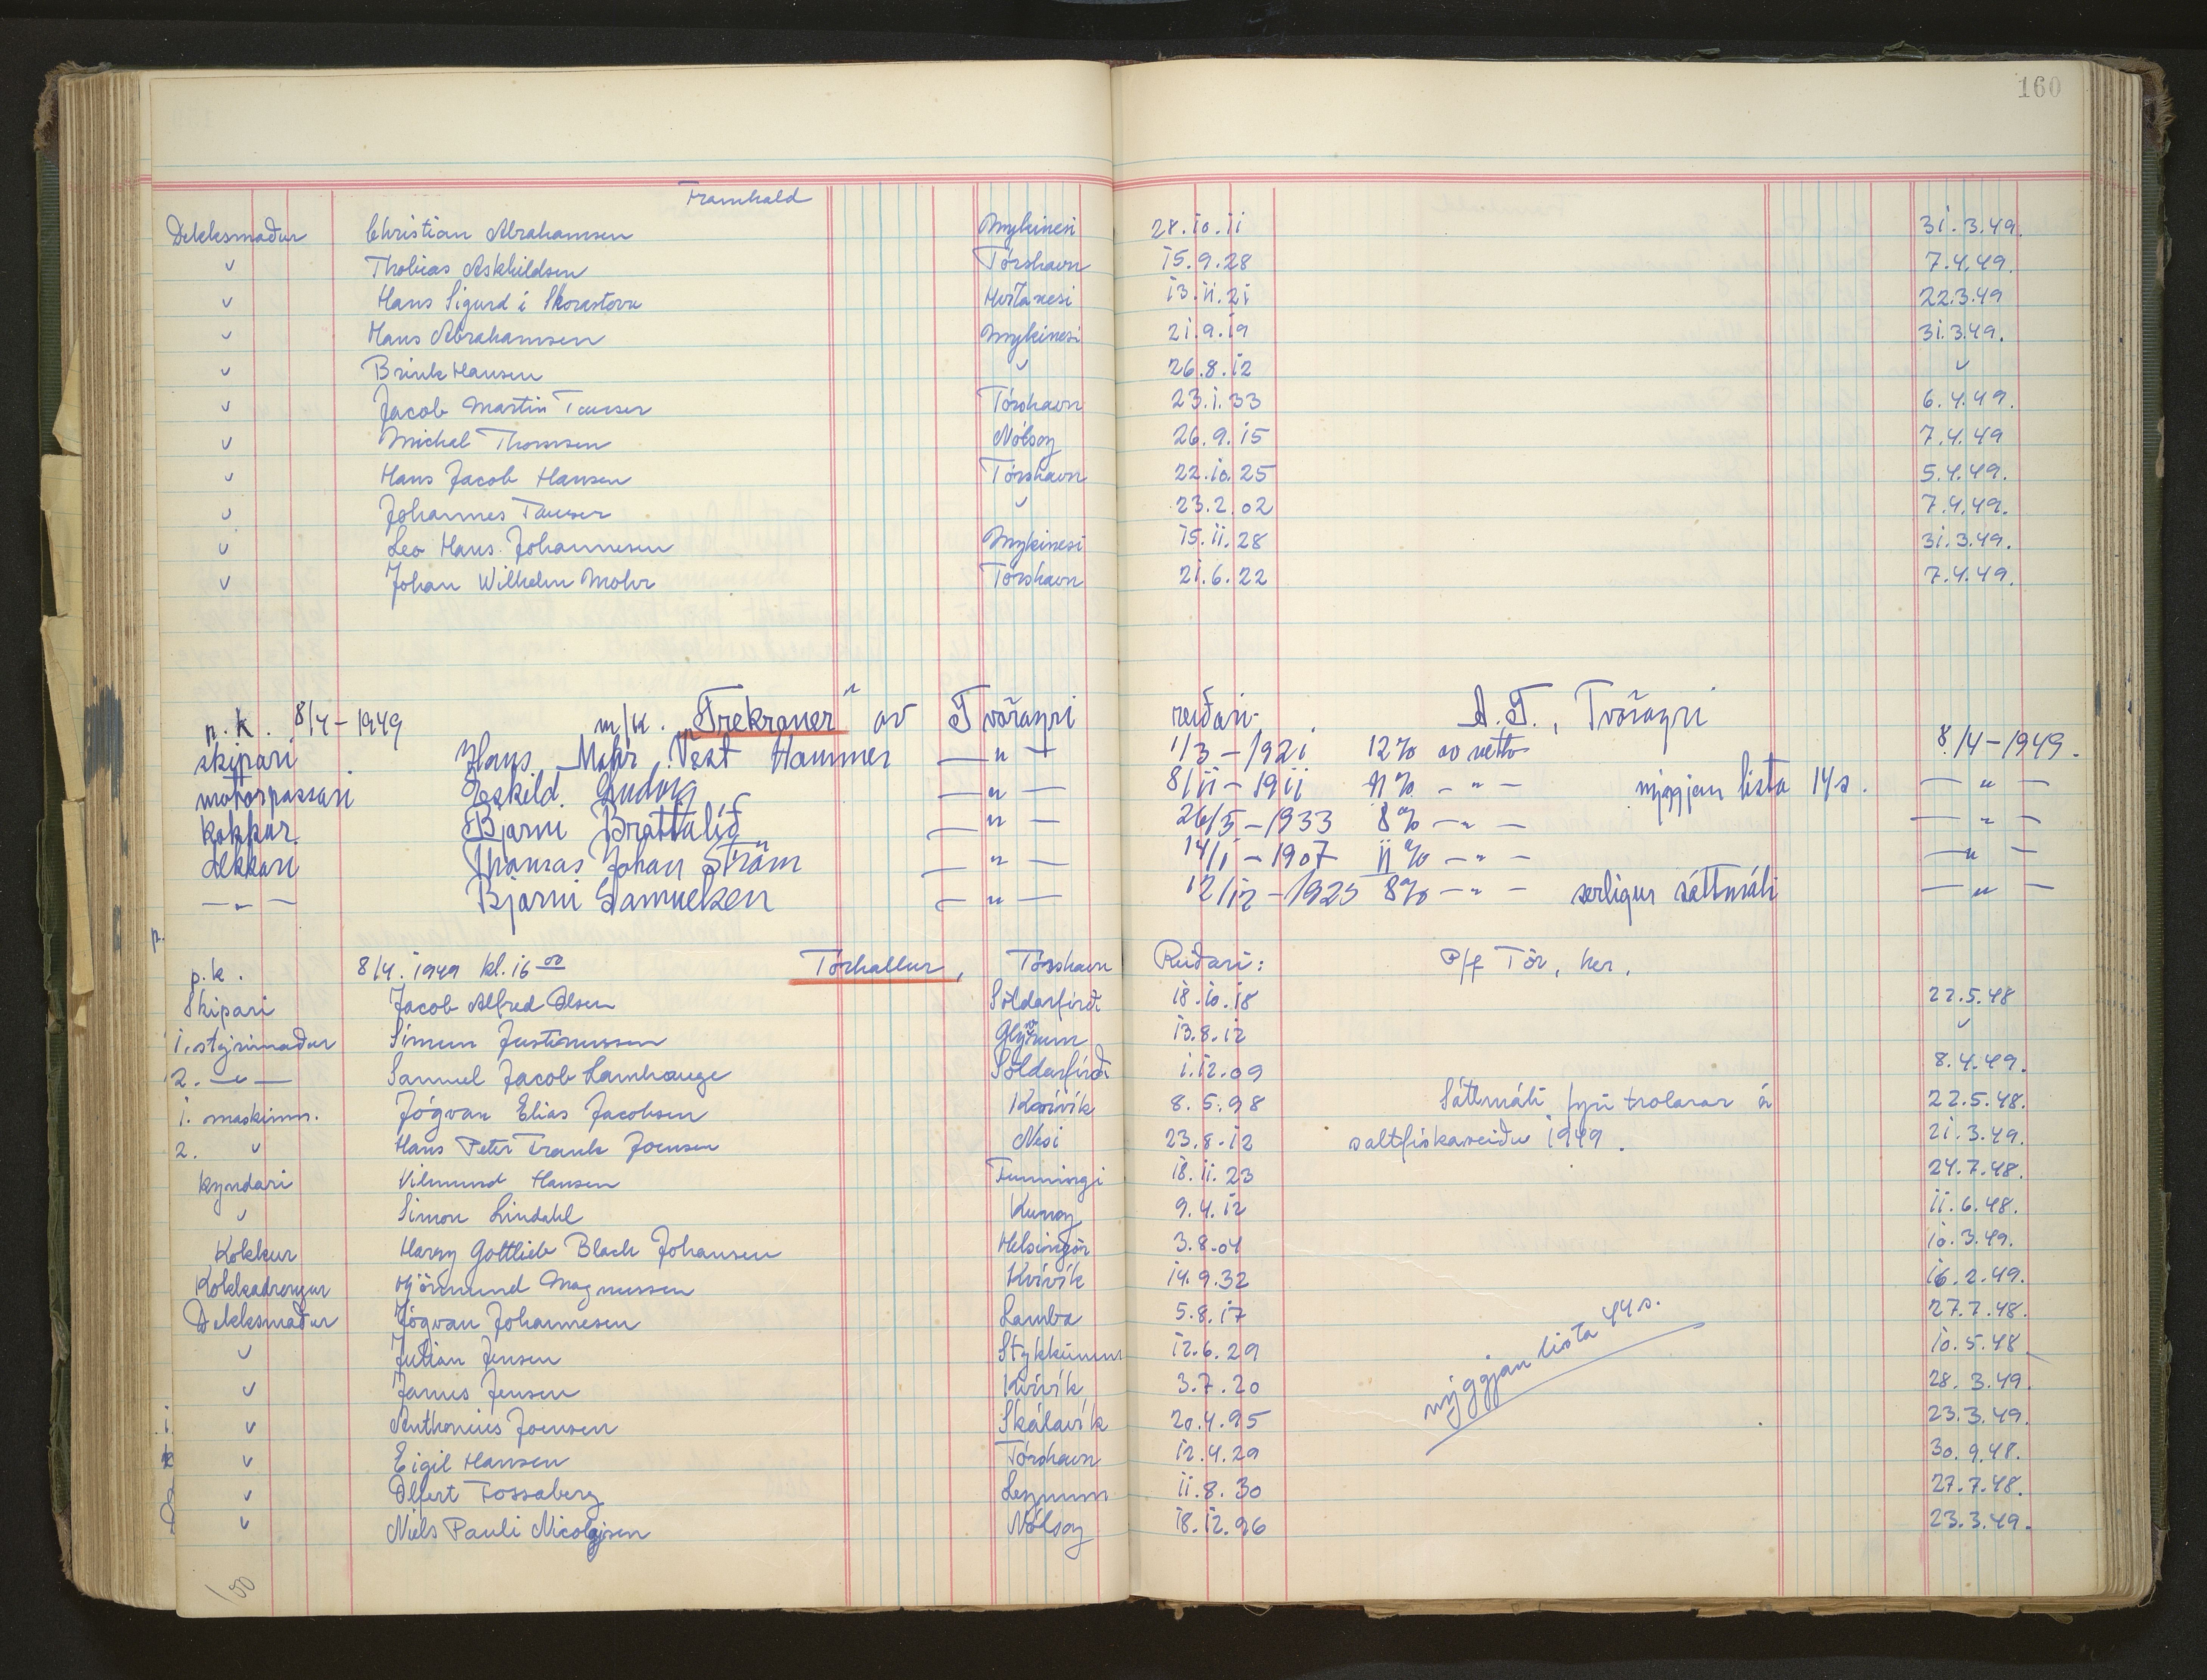 160
Framhald
Dekksmaður Christian Abrahamsen Mykinesi 28.10.11 31.3.49.
v Thobias Askhildsen Tórshavn 15.9.28 7.4.49.
v Hans Sigurd í Skorastovu Hvítanesi 13.11.21 22.3.49
v Hans Abrahamsen Mykinesi 21.9.19 31.3.49.
v Brink Hansen v 26.8.12 v
v Jacob Martin Tausen Tórshavn 23.1.33 6.4.49.
v Michal Thomsen Nólsoy 26.9.15 7.4.49
v Hans Jacob Hansen Tórshavn 22.10.25 5.4.49.
v Johannes Tausen v 23.2.02 7.4.49.
v Leo Hans Johannesen Mykinesi 15.11.28 31.3.49.
v Johan Wilhelm Mohr Tórshavn 21.6.22 7.4.49.
p.k. 8/4-1949 m/k. "Trekroner" av Tvöroyri reiðari: A.T., Tvöroyri
skipari Hans Mohr Vest Hammer — " — 1/3-1921 12% av netto 8/4-1949.
motorpassari Eskild Ludvig — " — 8/11-1911 11% - " - nýggjan lista 14 s. — " —
kokkur Bjarni Brattalíð — " — 26/5-1933 8% - " - — " —
dekkari Thomas Johan Ström — " — 14/1-1907 11% - " - — " —
— " — Bjarni Samuelsen — " — 12/12-1925 8% - " - serligur sáttmáli — " —
p.k. 8/4.1949 kl.16 00 Tórhallur, Tórshavn Reiðari: P/f Tór, her.
Skipari Jacob Alfred Olsen Söldarfirði 18.10.18 22.5.48
1. stýrimaður Simun Justinussen Glyvrum 13.8.12 v
2. — " — Samuel Jacob Lamhauge Söldarfirði 1.12.09 8.4.49.
1. maskinm. Jógvan Elias Jacobsen Kvívík 8.5.98 Sáttmáli fyri trolarar á 22.5.48.
2. v Hans Peter Frank Joensen Nesi 23.8.12 saltfiskaveiðu 1949. 21.3.49.
kyndari Vilmund Hansen Funningi 18.11.23 24.7.48.
v Simon Lindahl Kunoy 9.4.12 11.6.48.
Kokkur Harry Gottlieb Blach Johansen Helsingör 3.8.04 10.3.49.
Kokkadrongur Hjörmund Magnussen Kvívík 14.9.32 16.2.49.
Dekksmaður Jógvan Johannesen Lamba 5.8.17 27.7.48.
v Julian Jensen Stykkinum 12.6.29 10.5.48
v James Jensen Kvívík 3.7.20 nýggjan lista 44 s. 28.3.49.
v Anthonius Joensen Skálavík 20.4.95 23.3.49.
v Eigil Hansen Tórshavn 12.4.29 30.9.48.
v Olfert Fossaberg Leynum 11.8.30 27.7.48.
v Niels Pauli Nicolajsen Nólsoy 18.12.96 23.3.49.